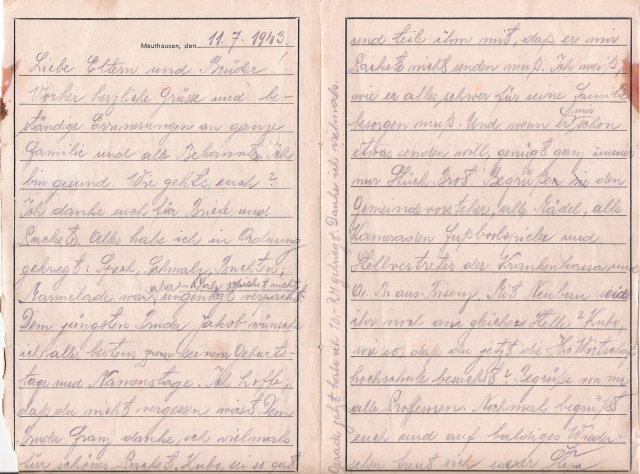 Mauthausen, den 11. 7. 1943.
Liebe Eltern und Brüder
Vorher herzliche Grüsse und be-
ständige Erinnerungen an ganze
Familie und alle Bekannte. Ich
bin gesund. Wie gehts euch?
Ich danke euch für Briefe und
Packete. Alles habe ich in Ordnung
gekriegt: Speck, Schmalz,
aber das schadet nicht
Marmelade war ungenügt verpackt
Dem jüngsten Bruder Jakob wünsche
ich alles bestens zum seinem Geburts-
tage und Namenstage. Ich hoffe,
daß du nicht vergessen wirst. Dem
Bruder Franz danke, ich vielmals
für schönes Packet. Kubo, sei so gut
und teile ihm mit, daß er mir
Packete nicht senden muß. Ich weiß,
wie er alles schwer für seine Familie
besorgen muß. Und wenn er mir schon
etwas senden will, genügt ganz immer
nur Stück Brot. Begrüßen sie den
Gemeindevorsteher, alle Mädel, alle
Kameraden und
Stellvertreter der Krankenkassa und
aus Mit Neubau seid
ihr noch am gleicher Stelle? Kubo,
wie so, daß du jetzt die Wirtschaf
hochschule besuchst? Begrüße von mir
alle Professoren. Nochmals begrüßt
euch und auf baldiges Wieder-
sehn freut sich euerer
Grade jetzt habe ich 10 - RM gekriegt. Danke ich vielmals.